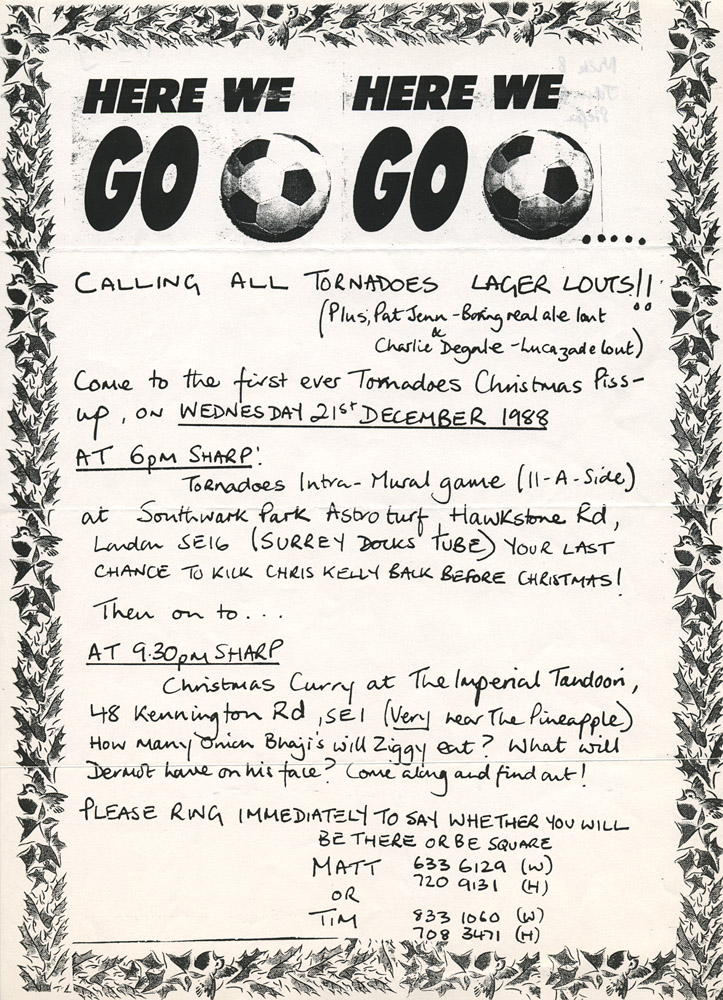 HERE WE HERE WE
GO GO .....
CALLING ALL TORNADOES LAGER LOUTS!!
(Plus; Pat Jenn - Boring real ale lout
&
Charlie Degale - Lucazade lout)
Come to the first ever Tornadoes Christmas Piss-
up, ON WEDNESDAY 21st DECEMBER 1988
AT 6pm SHARP!
Tornadoes Intra-Mural game (11-A-Side)
at Southwark Park Astroturf, Hawkstone Rd,
London SE16 (SURREY DOCKS TUBE) YOUR LAST
CHANCE TO KICK CHRIS KELLY BACK BEFORE CHRISTMAS!
Then on to...
AT 9.30pm SHARP
Christmas Curry at The Imperial Tandoori,
48 Kennington Rd, SE1 (Very near The Pineapple)
How many Onion Bhaji's will Ziggy eat? What will
Dermot have on his face? Come along and find out!
PLEASE RING IMMEDIATELY TO SAY WHETHER YOU WILL
BE THERE OR BE SQUARE
MATT 633 6129 (W)
720 9131 (H)
OR
TIM 833 1060 (W)
708 3471 (H)